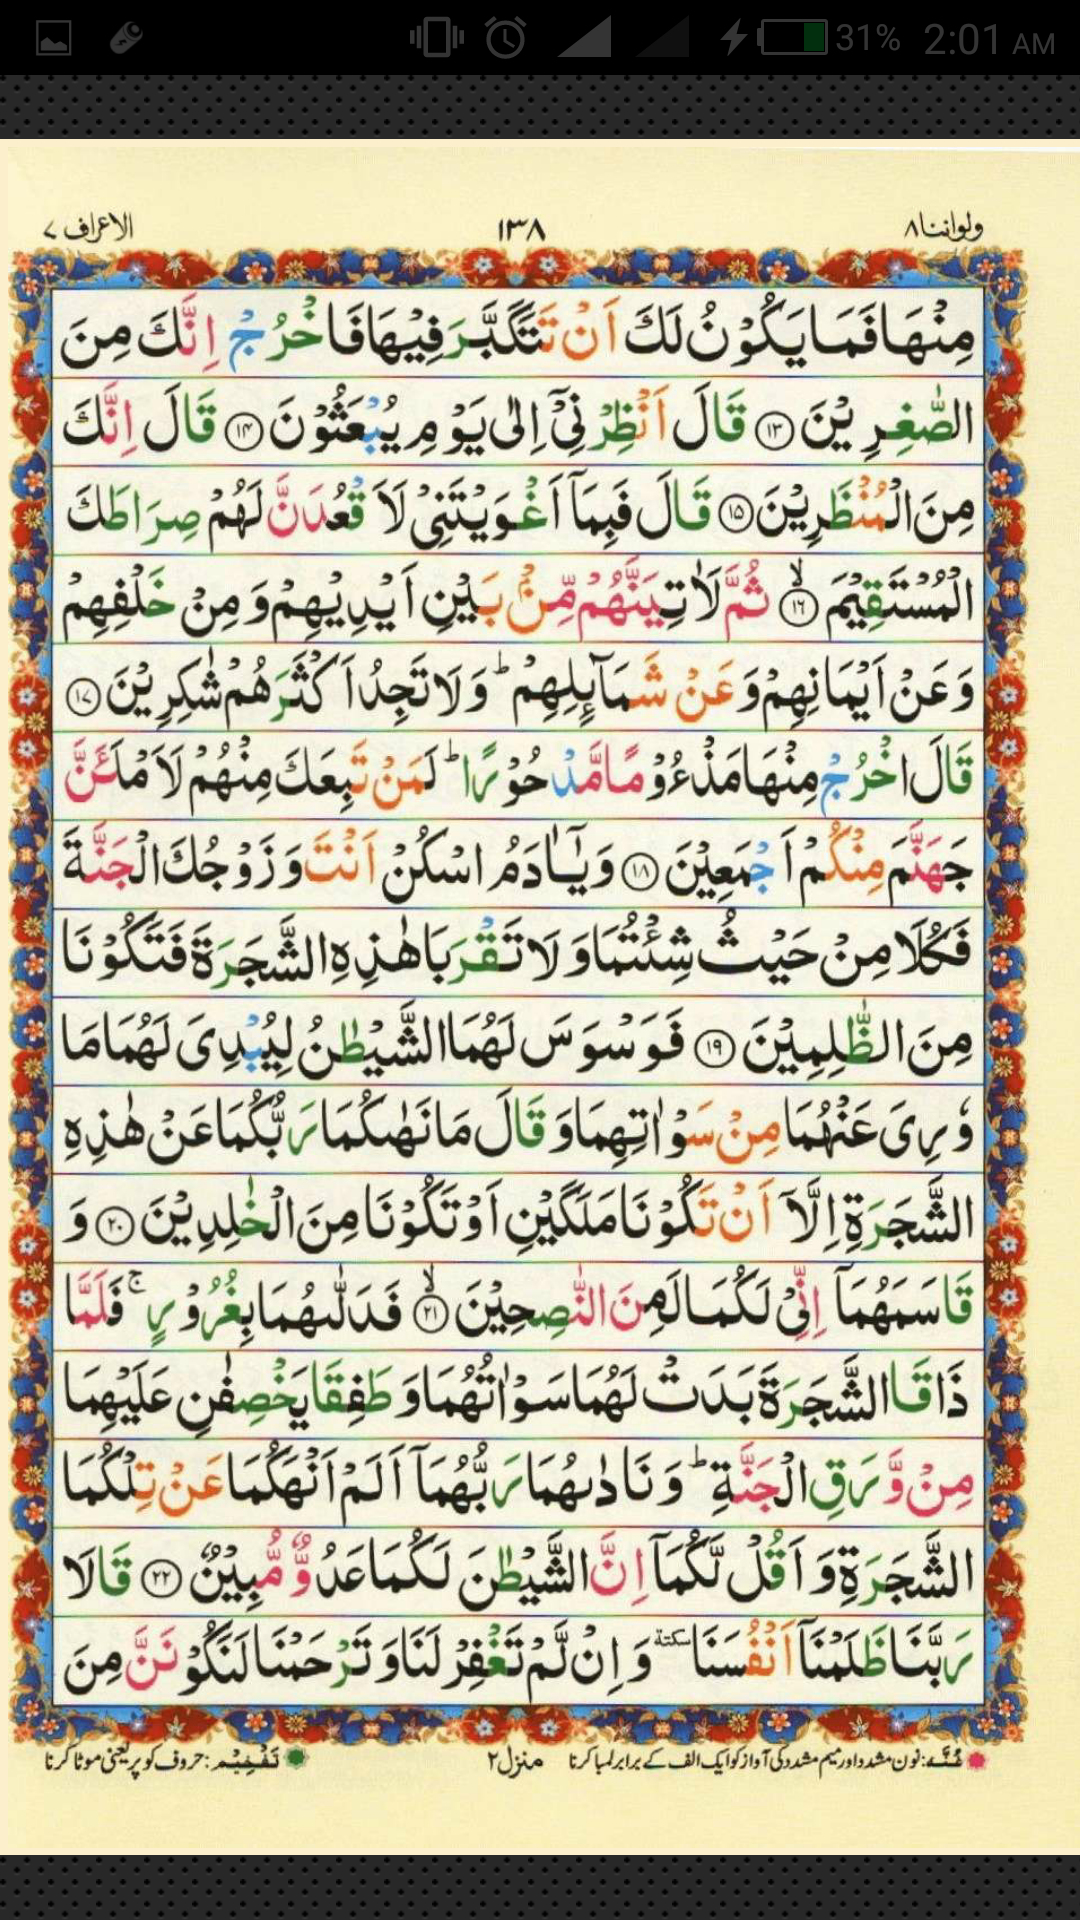 31% 2:01 AM
ولواننا ۸ ۱۳۸ الاعراف ۷
مِنْهَا فَمَا يَكُوْنُ لَكَ اَنْ تَتَكَبَّرَ فِيْهَا فَاخْرُجْ اِنَّكَ مِنَ
الصّٰغِرِيْنَ ۝۱۳ قَالَ اَنْظِرْنِيْۤ اِلٰى يَوْمِ يُبْعَثُوْنَ ۝۱۴ قَالَ اِنَّكَ
مِنَ الْمُنْظَرِيْنَ ۝۱۵ قَالَ فَبِمَاۤ اَغْوَيْتَنِيْ لَاَقْعُدَنَّ لَهُمْ صِرَاطَكَ
الْمُسْتَقِيْمَ ۝۱۶ ۙ ثُمَّ لَاٰتِيَنَّهُمْ مِّنْۢ بَيْنِ اَيْدِيْهِمْ وَ مِنْ خَلْفِهِمْ
وَ عَنْ اَيْمَانِهِمْ وَ عَنْ شَمَآىِٕلِهِمْ ؕ وَ لَا تَجِدُ اَكْثَرَهُمْ شٰكِرِيْنَ ۝۱۷
قَالَ اخْرُجْ مِنْهَا مَذْءُوْمًا مَّدْحُوْرًا ؕ لَمَنْ تَبِعَكَ مِنْهُمْ لَاَمْلَئَنَّ
جَهَنَّمَ مِنْكُمْ اَجْمَعِيْنَ ۝۱۸ وَ يٰۤاٰدَمُ اسْكُنْ اَنْتَ وَ زَوْجُكَ الْجَنَّةَ
فَكُلَا مِنْ حَيْثُ شِئْتُمَا وَ لَا تَقْرَبَا هٰذِهِ الشَّجَرَةَ فَتَكُوْنَا
مِنَ الظّٰلِمِيْنَ ۝۱۹ فَوَسْوَسَ لَهُمَا الشَّيْطٰنُ لِيُبْدِيَ لَهُمَا مَا
وٗرِيَ عَنْهُمَا مِنْ سَوْاٰتِهِمَا وَ قَالَ مَا نَهٰىكُمَا رَبُّكُمَا عَنْ هٰذِهِ
الشَّجَرَةِ اِلَّاۤ اَنْ تَكُوْنَا مَلَكَيْنِ اَوْ تَكُوْنَا مِنَ الْخٰلِدِيْنَ ۝۲۰ وَ
قَاسَمَهُمَاۤ اِنِّيْ لَكُمَا لَمِنَ النّٰصِحِيْنَ ۝۲۱ ۙ فَدَلّٰىهُمَا بِغُرُوْرٍ ۚ فَلَمَّا
ذَاقَا الشَّجَرَةَ بَدَتْ لَهُمَا سَوْاٰتُهُمَا وَ طَفِقَا يَخْصِفٰنِ عَلَيْهِمَا
مِنْ وَّرَقِ الْجَنَّةِ ؕ وَ نَادٰىهُمَا رَبُّهُمَاۤ اَلَمْ اَنْهَكُمَا عَنْ تِلْكُمَا
الشَّجَرَةِ وَ اَقُلْ لَّكُمَاۤ اِنَّ الشَّيْطٰنَ لَكُمَا عَدُوٌّ مُّبِيْنٌ ۝۲۲ قَالَا
رَبَّنَا ظَلَمْنَاۤ اَنْفُسَنَا سكتة وَ اِنْ لَّمْ تَغْفِرْ لَنَا وَ تَرْحَمْنَا لَنَكُوْنَنَّ مِنَ
غُنَّه: نون مشدد اور میم مشدد کی آواز کو ایک الف کے برابر لمبا کرنا منزل ۲ تَفْخِيْم: حروف کو پر یعنی موٹا کرنا